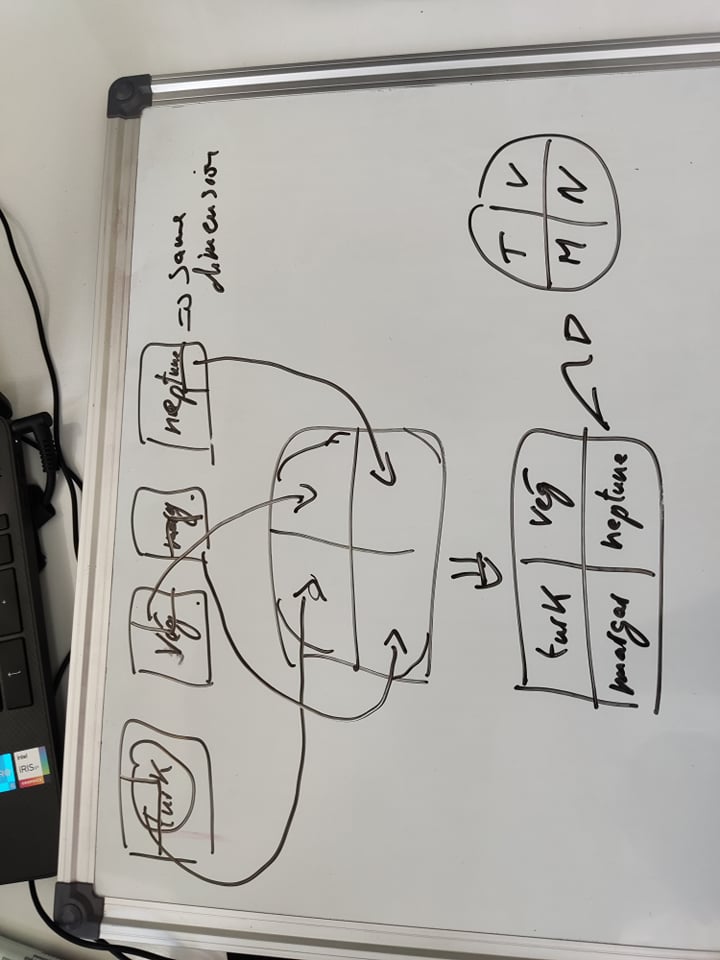 turk
Veg
marg
neptune
=> same
dimension
turk
veg
margar
neptune
T
V
M
N